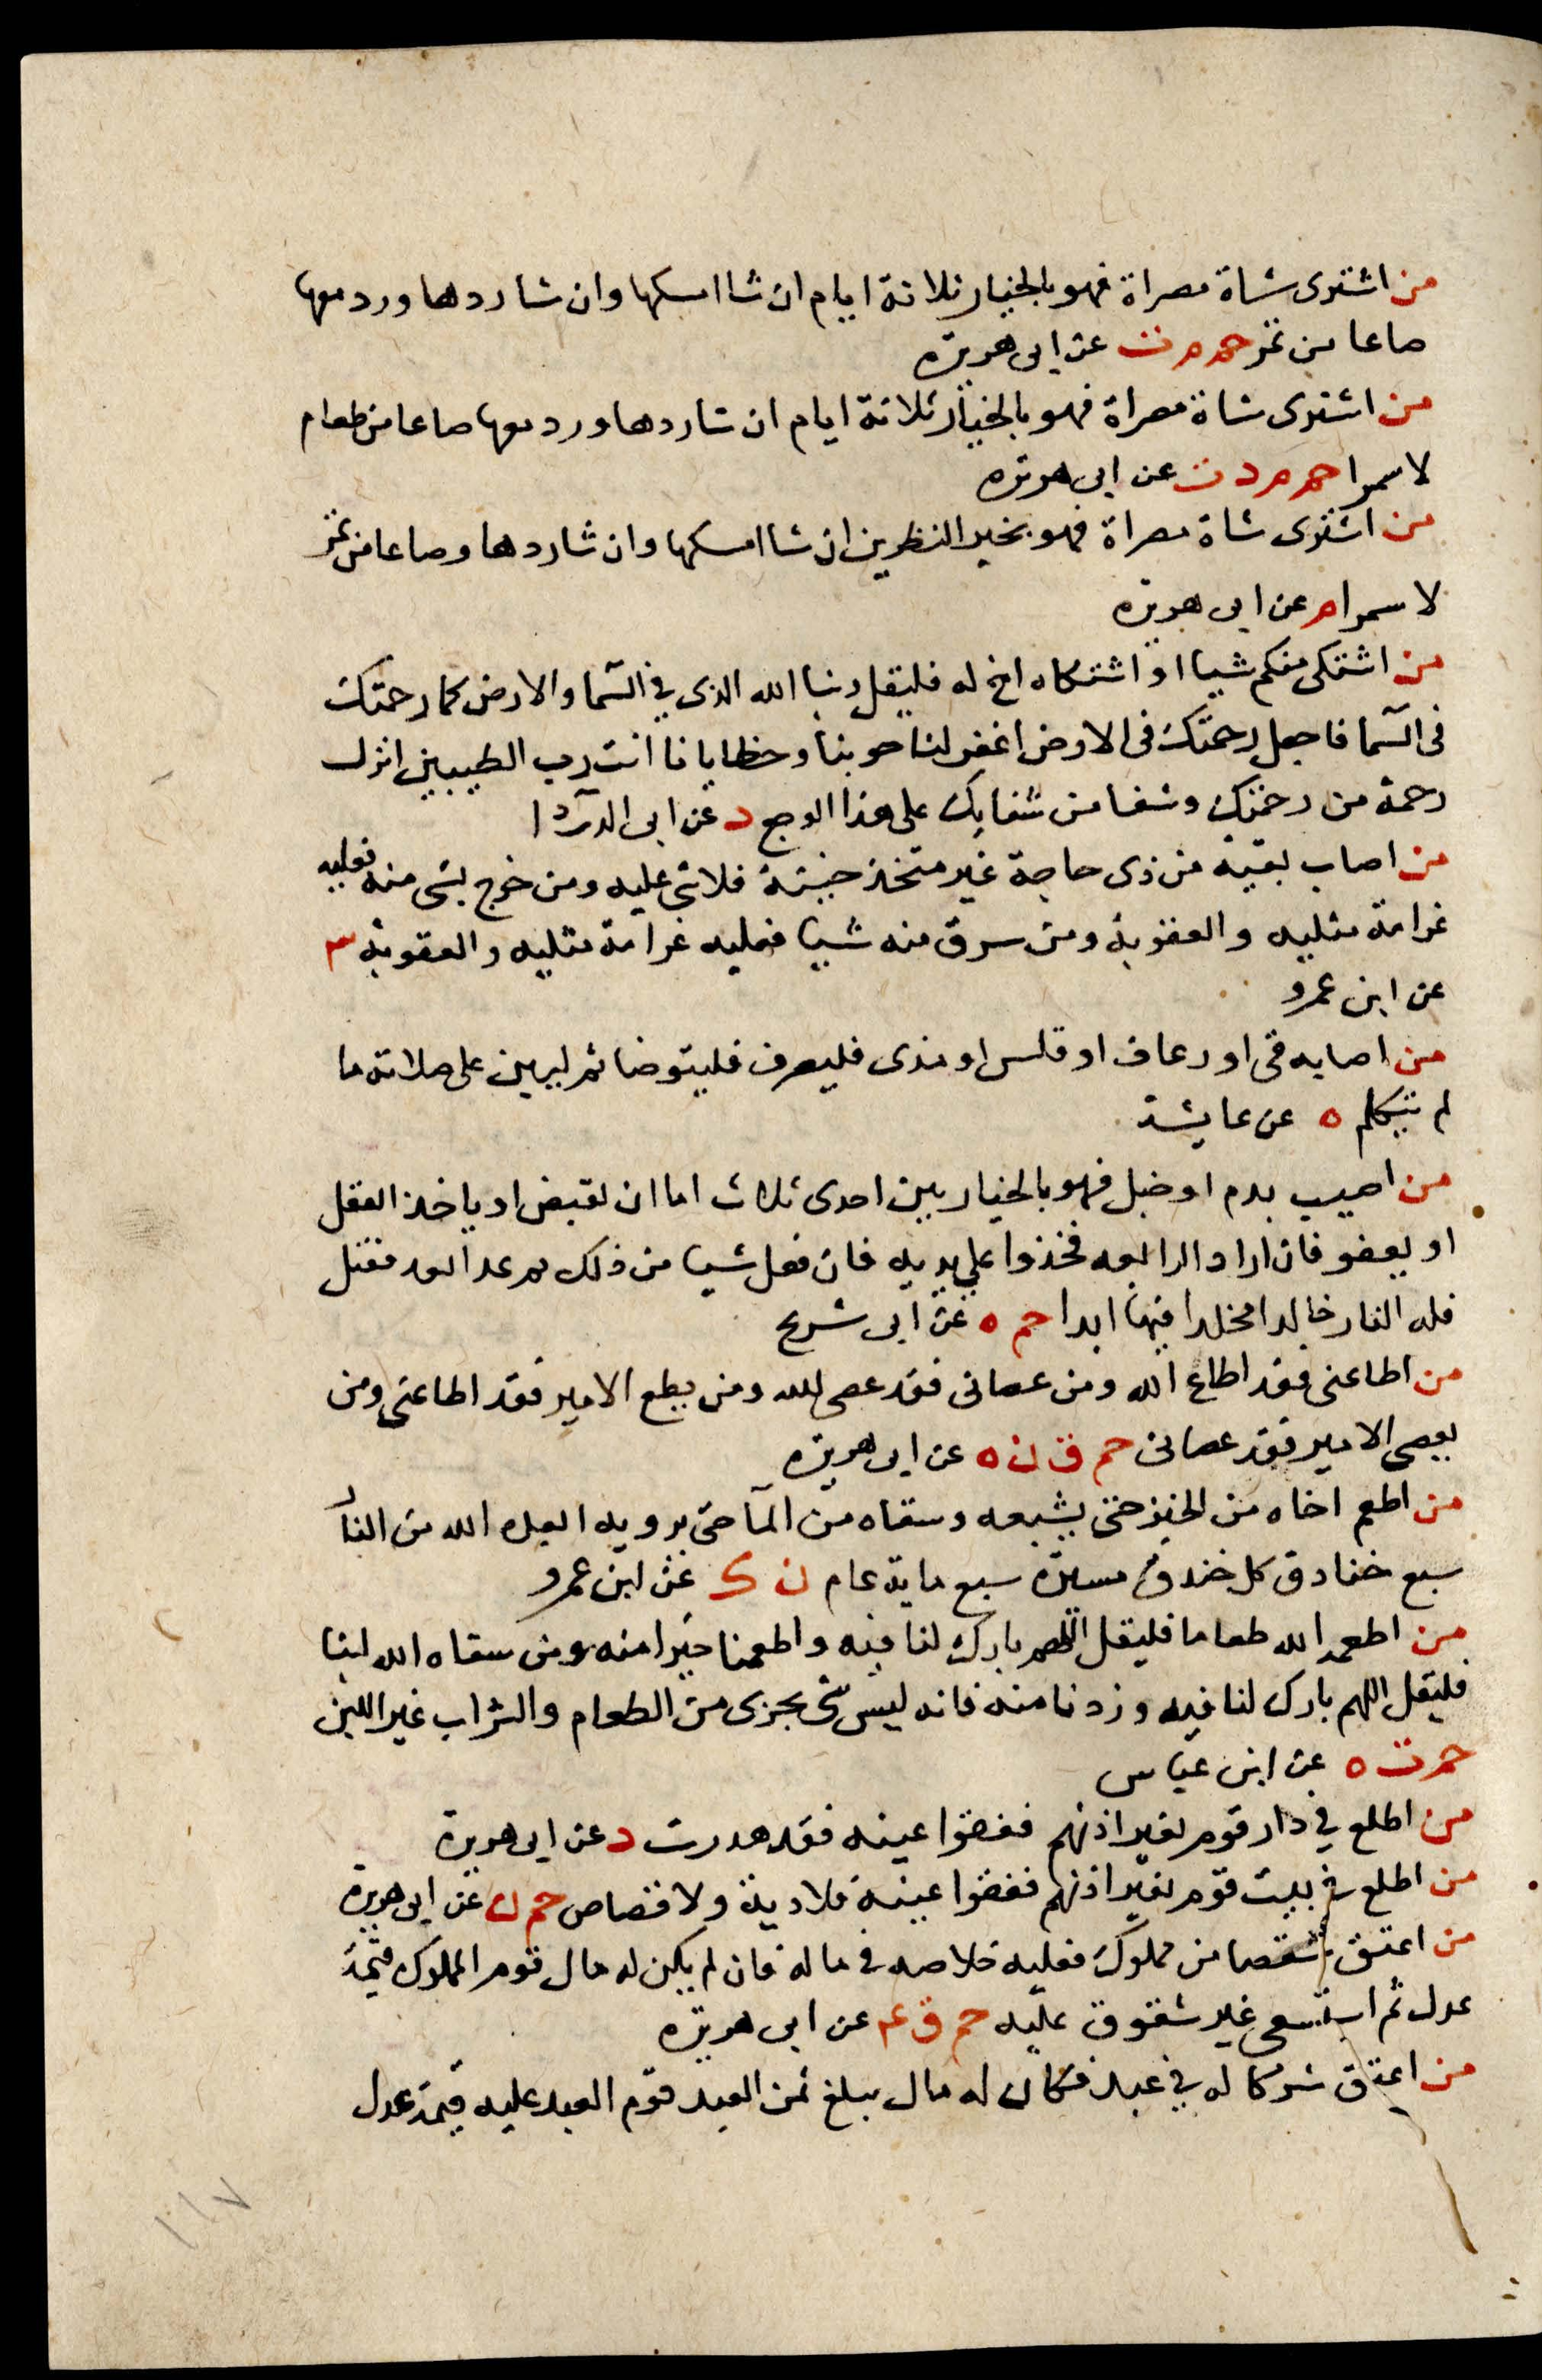 من اشترى شاة مصراة فهو بالخيار ثلاثة ايام ان شا امسكها وان شا ردها ورد معها
صاعا من تمر حم م ت عن ابى هريرة
من اشترى شاة مصراة فهو بالخيار ثلاثة ايام ان شا ردها ورد معها صاعا من طعام
لا سمرا حم م د ت عن ابى هريره
من اشترى شاة مصراة فهو بخير النظرين ان شا امسكها وان شا ردها وصاعا من تمر
لا سمرا م عن ابى هريره
من اشتكى منكم شيا او اشتكاه اخ له فليقل ربنا الله الذى في السما والارض كما رحمتك
فى السما فاجعل رحمتك فى الارض اغفر لنا حوبنا وخطايانا انت رب الطيبين انزل
رحمة من رحمتك وشفا من شفايك على هذا الوجع د عن ابى الدردا
من اصاب بفيه من ذى حاجة غير متخذ خبنة فلا شى عليه ومن خرج بشى منه فعليه
غرامة مثليه والعقوبة ومن سرق منه شيا فعليه غرامة مثليه والعقوبة ٣
عن ابن عمرو
من اصابه قى او رعاف او قلس او مذى فلينصرف فليتوضا ثم ليبن على صلاته ما
لم يتكلم ه عن عايشة
من اصيب بدم او خبل فهو بالخيار بين احدى ثلاث اما ان يقتص او ياخذ العقل
او يعفو فان اراد الرابعه فخذوا على يديه فان فعل شيا من ذلك ثم عدا بعد فقتل
فله النار خالدا مخلدا فيها ابدا حم ه عن ابى شريح
من اطاعنى فقد اطاع الله ومن عصانى فقد عصى الله ومن يطع الامير فقد اطاعنى ومن
يعصى الامير فقد عصانى حم ق ن ه عن ابى هريره
من اطعم اخاه من الخبز حتى يشبعه وسقاه من الما حتى يرويه ابعده الله من النار
سبع خنادق كل خندق مسيرة سبع ماية عام ن ك عن ابن عمرو
من اطعمه الله طعاما فليقل اللهم بارك لنا فيه واطعمنا خيرا منه ومن سقاه الله لبنا
فليقل اللهم بارك لنا فيه وزدنا منه فانه ليس شى يجزى من الطعام والشراب غير اللبن
حم ت ه عن ابن عباس
من اطلع في دار قوم بغير اذنهم ففقؤا عينه فقد هدرت د عن ابى هريرة
من اطلع في بيت قوم بغير اذنهم ففقؤا عينه فلا دية ولا قصاص حم ن عن ابى هريرة
من اعتق شقصا من مملوك فعليه خلاصه في ماله فان لم يكن له مال قوم المملوك قيمة
عدل ثم استسعى غير مشقوق عليه حم ق ع عن ابى هريره
من اعتق شركا له في عبد فكان له مال يبلغ ثمن العبد قوم العبد عليه قيمة عدل